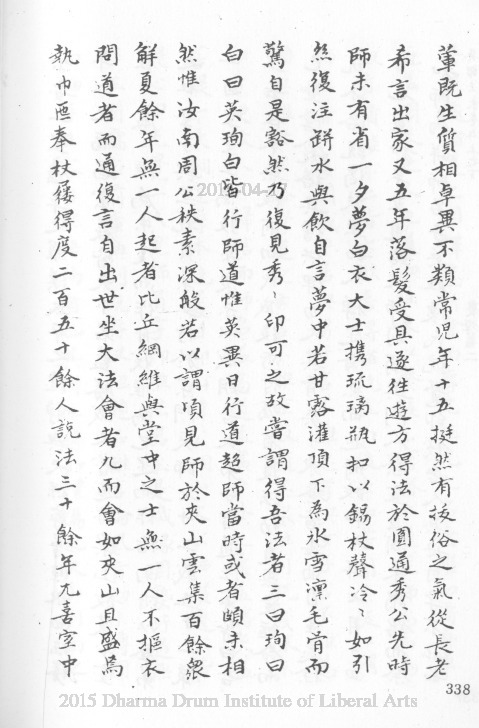 葷既生質相卓異不類常児年十五挺然有拔俗之氣從長老
希言出家又五年落髮受具遂徃遊方得法於圓通秀公先時
師未有省一夕夢白衣大士携琉璃瓶扣以錫杖聲冷〻如引
絲復注缾水與飲自言夢中若甘露灌頂下為氷雪凜毛骨而
驚自是豁然乃復見秀〻印可之故嘗謂得吾法者三曰珣曰
白曰英珣白皆行師道惟英異日行道超師當時或者頗未相
然惟汝南周公秩素深般若以謂頃見師於夾山雲集百餘眾
解夏餘年無一人起者比丘綱維與堂中之士無一人不摳衣
問道者而通復言自出世坐大法會者九而會如夾山且盛焉
執巾匜奉杖屨得度二百五十餘人說法三十餘年尤喜室中
338
2015-04-27
2015 Dharma Drum Institute of Liberal Arts